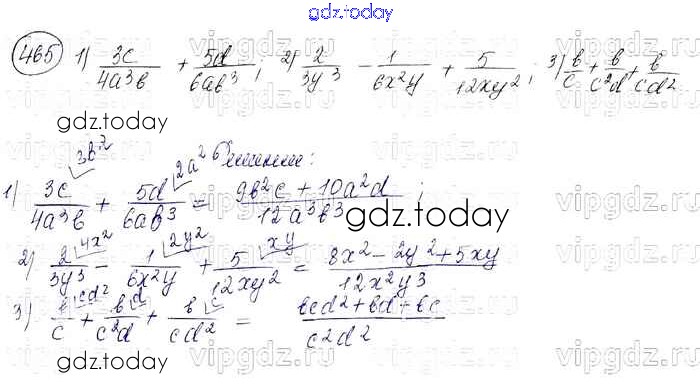 gdz.today
465 1) 3c/4a³b + 5d/6ab³; 2) 2/3y³ - 1/6x²y + 5/12xy²; 3) b/c + b/c²d + b/cd²
gdz.today
1) 3c/4a³b + 5d/6ab³ = 9b²c + 10a²d/12a³b³;
gdz.today
2) 2/3y³ - 1/6x²y + 5/12xy² = 8x² - 2y² + 5xy/12x²y³
3) b/c + b/c²d + b/cd² = bcd² + bd + bc/c²d²
gdz.today
vipgdz.ru